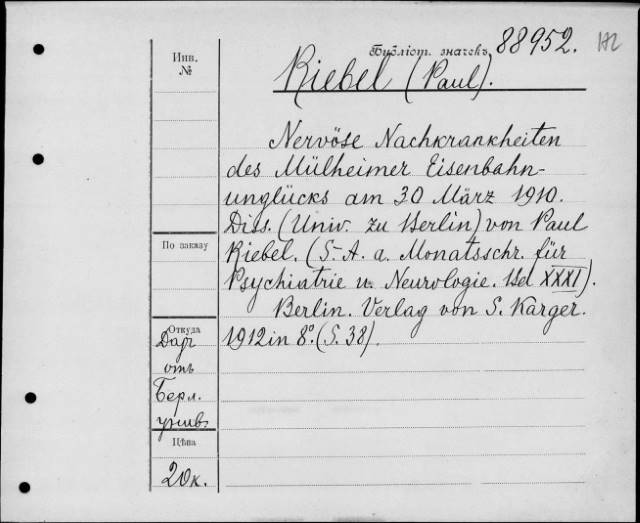 Библіот. значекъ 88952.
Инв.
№
Riebel (Paul).
Nervöse Nachkrankheiten
des Mülheimer Eisenbahn-
unglücks am 30 März 1910.
Diss. (Univ. zu Berlin) von Paul
По заказу
Riebel. (S.-A. a. Monatsschr. für
Psychiatrie u. Neurologie. Bd XXXI).
Berlin. Verlag von S. Karger.
Откуда
1912 in 8°. (S. 38).
Даръ
отъ
Берл.
унив.
Цѣна
20к.